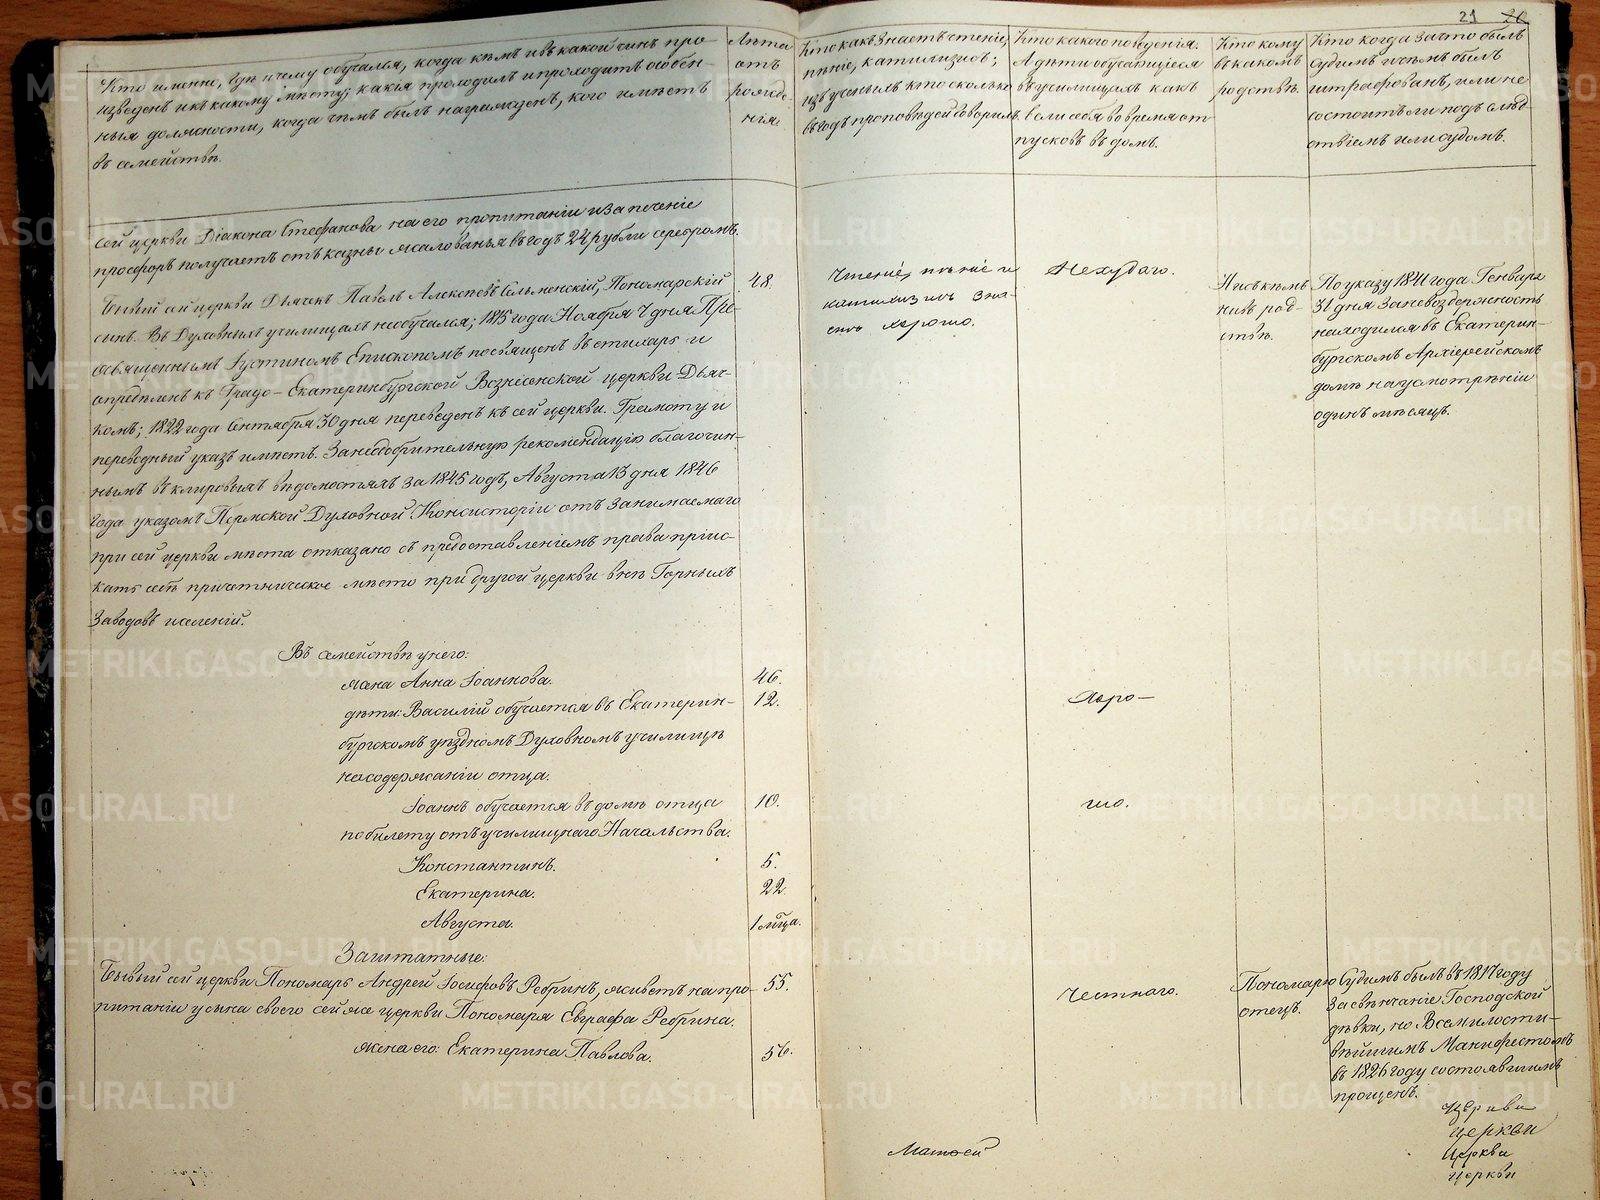 21 20
Кто именно, где и чему обучался, когда кѣмъ и въ какой чинъ про-
изведенъ и къ какому мѣсту; какія проходилъ и проходитъ особен-
ныя должности, когда чѣмъ былъ награжденъ, кого имѣетъ
въ семействѣ.
Лѣта
отъ
рожде-
нія.
Кто какъ знаетъ чтеніе,
пѣніе, катихизисъ;
изъ ученыхъ кто сколько
въ годъ проповѣдей говорилъ.
Кто какого поведенія.
А дѣти обучающіеся
въ училищахъ какъ
вели себя во время от-
пусковъ въ домъ.
Кто кому
въ какомъ
родствѣ.
Кто когда за что былъ
судимъ и чѣмъ былъ
штрафованъ, или не
состоитъ ли подъ слѣд-
ствіемъ или судомъ.
сей церкви Діакона Стефанова на его пропитаніи и за печеніе
просфоръ получаетъ отъ казны жалованья въ годъ 24 рубли серебромъ.
Бывый сей церкви Дьячекъ Павелъ Алексѣевъ Сельменскій, Пономарскій
сынъ. Въ Духовныхъ училищахъ необучался; 1815 года Ноября 7 дня Пре-
освященнымъ Іустиномъ Епископомъ посвященъ въ стихарь и
опредѣленъ къ Градо-Екатеринбургской Вознесенской церкви Дьяч-
комъ; 1822 года Сентября 30 дня переведенъ къ сей церкви. Грамоту и
переводный указъ имѣетъ. За неодобрительную рекомендацію благочин-
нымъ въ клировыхъ вѣдомостяхъ за 1845 годъ, Августа 13 дня 1846
года указомъ Пермской Духовной Консисторіи отъ занимаемаго
при сей церкви мѣста отказано съ предоставленіемъ права пріис-
кать себѣ причетническое мѣсто при другой церкви внѣ Горныхъ
Заводовъ и селеній.
48.
Чтеніе, пѣніе и
катихизисъ зна-
етъ хорошо.
Нехудаго.
Ни съ кѣмъ
нивъ род-
ствѣ.
По указу 1841 года Генваря
31 дня за невоздержность
находился въ Екатерин-
бургскомъ Архіерейскомъ
домѣ на усмотрѣніи
одинъ мѣсяцъ.
Въ семействѣ у него:
жена Анна Іоаннова. 46.
дѣти: Василій обучается въ Екатерин- 12.
бургскомъ уѣздномъ Духовномъ училищѣ
на содержаніи отца.
Хоро-
Іоаннъ обучается въ домѣ отца 10.
по билету отъ училищнаго Начальства.
шо.
Константинъ. 5.
Екатерина. 22.
Августа. 1 мѣца.
Заштатные:
Бывый сей церкви Пономарь Андрей Іосифовъ Ребринъ, живетъ на про- 55.
питаніи у сына своего сей же церкви Пономаря Евграфа Ребрина.
жена его: Екатерина Павлова. 56.
Честнаго.
Пономарю
отецъ.
Судимъ былъ въ 1817 году
за свѣнчаніе Господской
дѣвки, но Всемилости-
вѣйшимъ Манифестомъ
въ 1826 году состоявшимъ
прощенъ.
Матѳей
Церкви
церкви
Церкви
церкви
METRIKI.GASO-URAL.RU